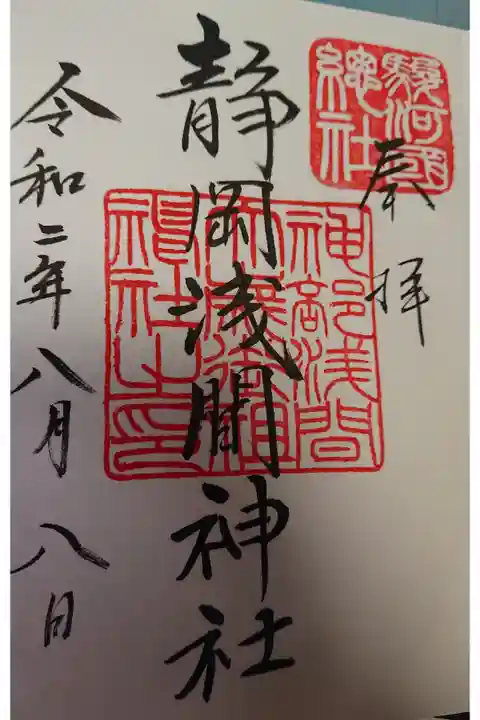 奉拝
駿河國
總社
静岡浅間神社
神部浅間
大歳御祖
神社之印
令和二年八月八日